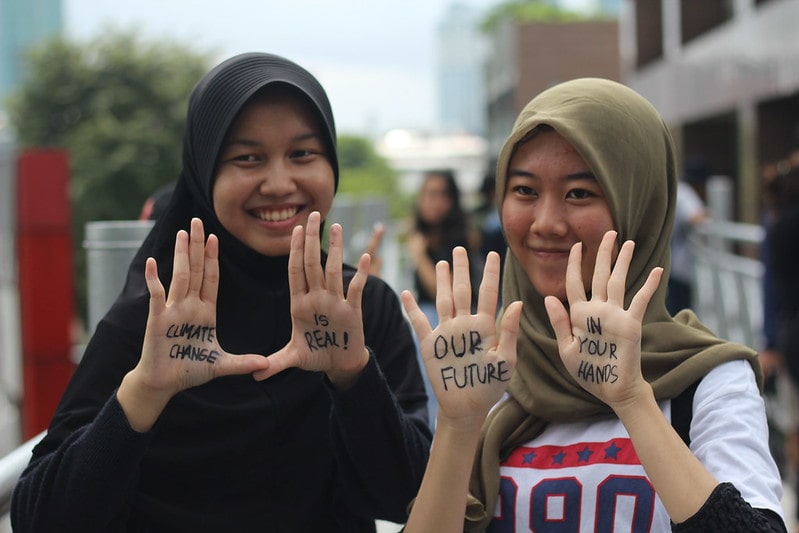 CLIMATE
CHANGE
IS
REAL!
OUR
FUTURE
IN
YOUR
HANDS